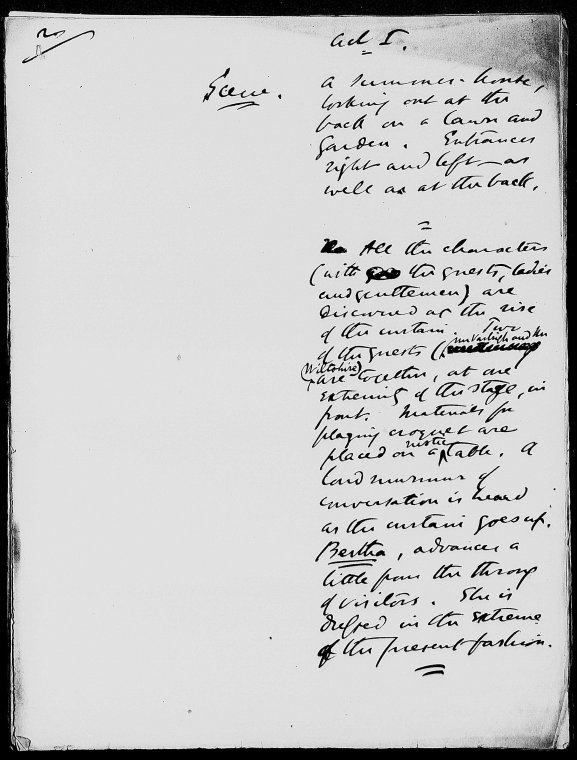 2
Act I.
Scene.
A summer-house,
looking out at the
back on a lawn and
garden. Entrances
right and left – as
well as at the back.
All the characters
(with the guests, ladies
and gentlemen) are
discovered at the rise
of the curtain. Two
of the guests (
Mr Varleigh and Mr
Wiltshire)
are together, at one
extremity of the stage, in
front. Materials for
playing croquet are
placed on a rustic table. A
loud murmur of
conversation is heard
as the curtain goes up.
Bertha, advances a
little from the throng
of visitors. She is
dressed in the extreme
of the present fashion.